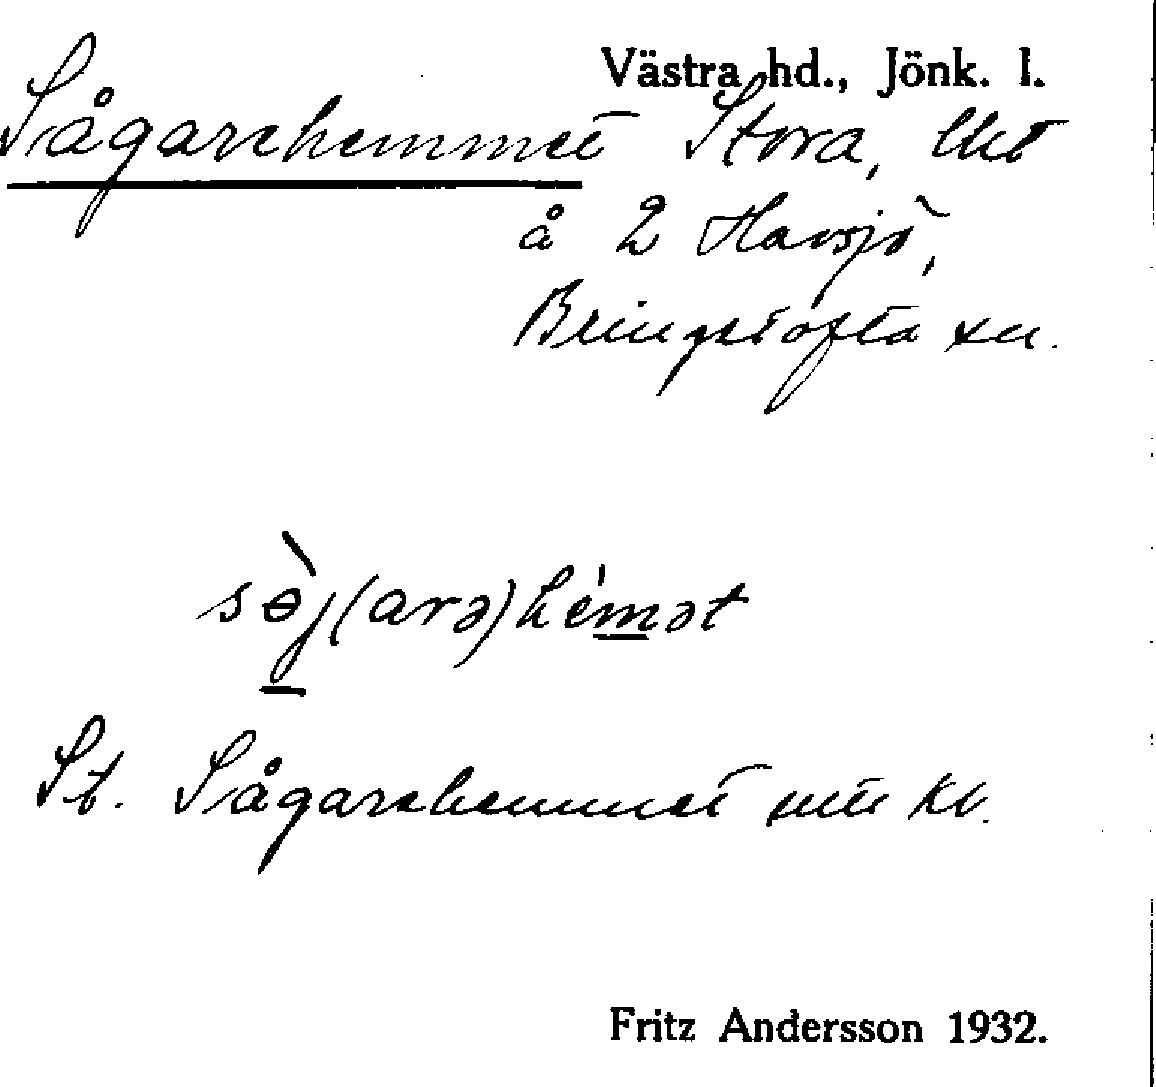 Västra hd., Jönk. l.
Sågarehemmet Stora, lht
å 2 Havsjö,
Bringetofta sn.
sə̀j(arə)hémət
St. Sågarehemmet kv.
Fritz Andersson 1932.